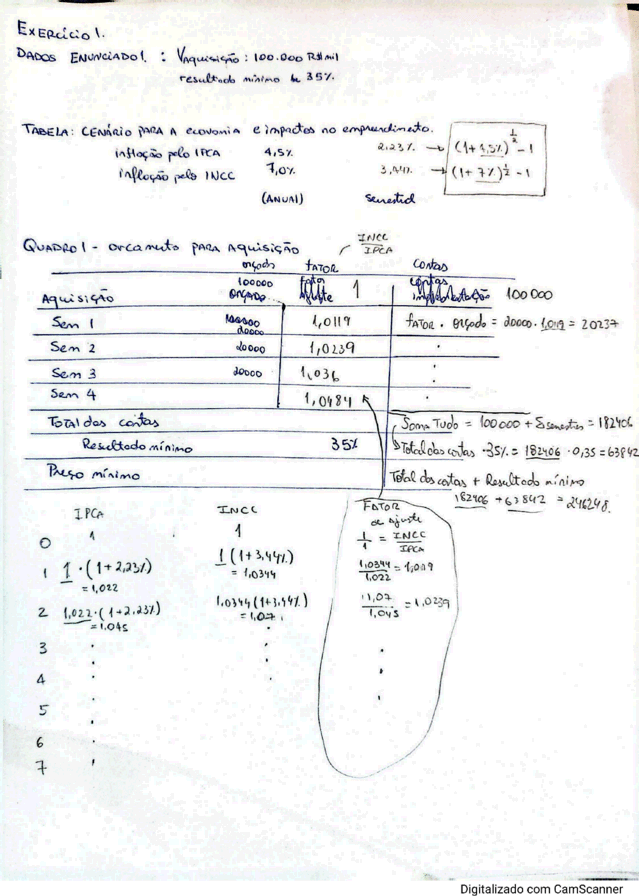 EXERCÍCIO 1.
DADOS ENUNCIADO 1. : Vaquisição : 100.000 R$ mil
resultado mínimo de 35%
TABELA: CENÁRIO PARA A economia e impactos no empreendimento.
inflação pelo IPCA 4,5% 2,23% → (1+4,5%)^1/2 - 1
inflação pelo INCC 7,0% 3,44% → (1+7%)^1/2 - 1
(ANUAL) semestral
QUADRO 1 - orçamento PARA AQUISIÇÃO INCC/IPCA
orçado FATOR contas
Aquisição 100000 orçado Fator Ajuste 1 contas 100000
Sem 1 20000 1,0119 FATOR . orçado = 20000 . 1,0119 = 20237
Sem 2 20000 1,0239 .
Sem 3 20000 1,036 .
Sem 4 1,0484 .
Total das contas Soma Tudo = 100000 + Σ semestres = 182406
Resultado mínimo 35% Total das contas . 35% = 182406 . 0,35 = 63842
Preço mínimo Total das contas + Resultado mínimo
182406 + 63842 = 246248.
IPCA INCC FATOR de ajuste
0 1 1 1/1 = INCC/IPCA
1 1 . (1+2,23%) = 1,022 1 (1+3,44%) = 1,0344 1,0344/1,022 = 1,0119
2 1,022 . (1+2,23%) = 1,045 1,0344 (1+3,44%) = 1,07 1,07/1,045 = 1,0239
3 . . .
4 . . .
5 . .
6 .
7 .
Digitalizado com CamScanner